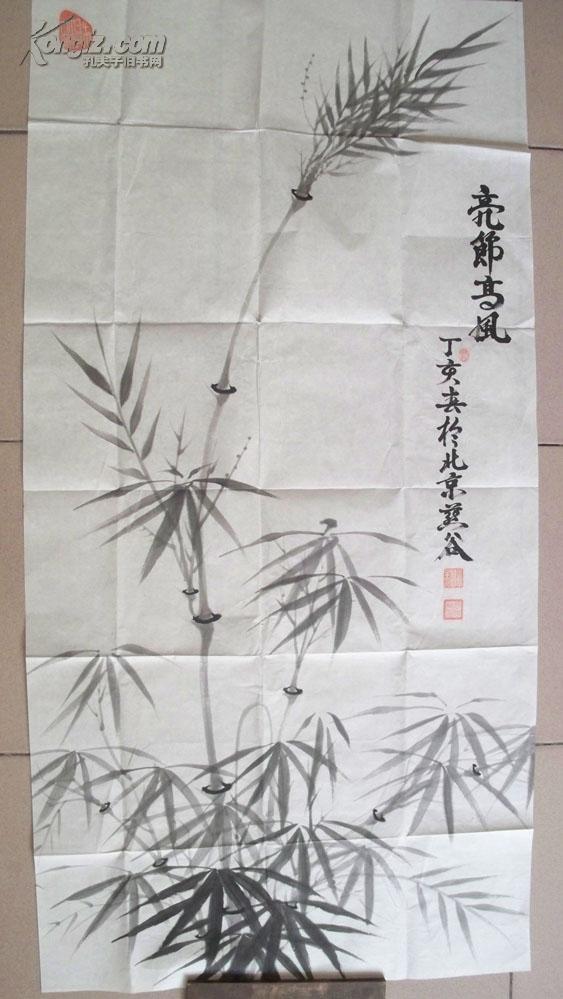 Kongfz.com
孔夫子旧书网
亮節高風
丁亥春於北京燕谷